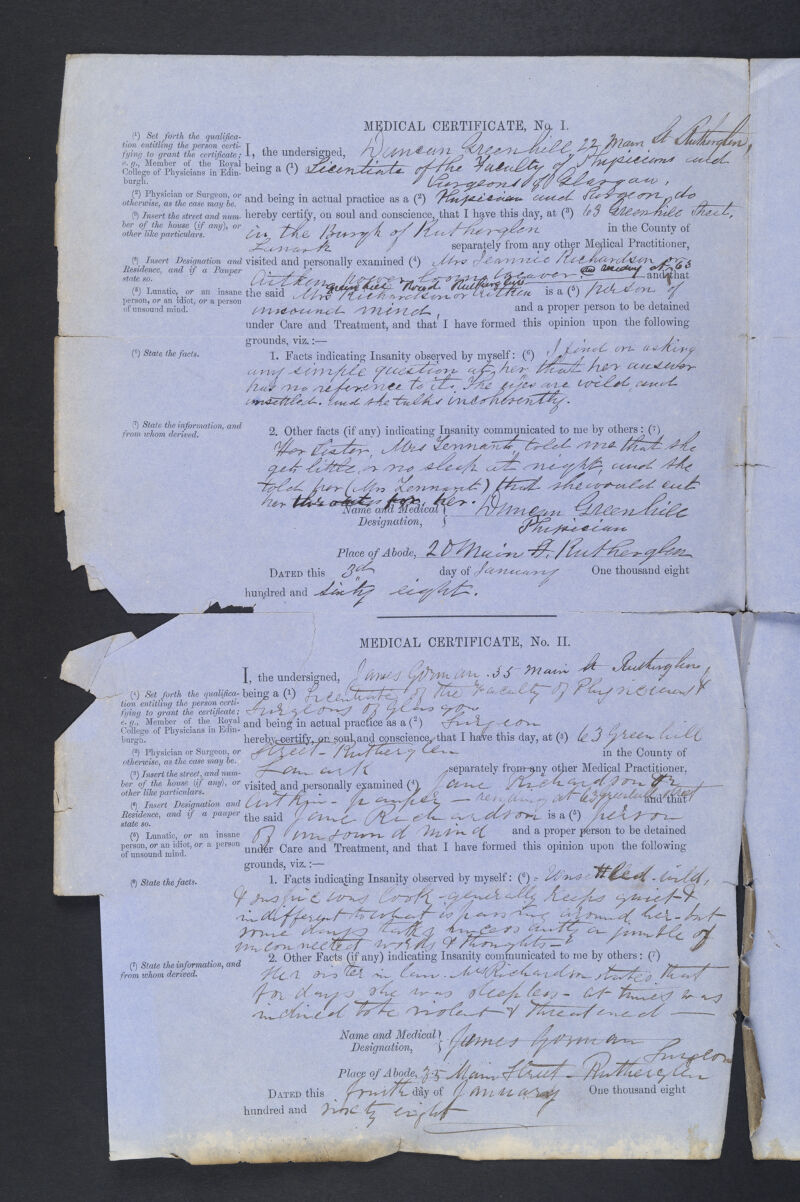 MEDICAL CERTIFICATE, No. I.
(1) Set forth the qualifica-
tion entitling the person certi-
fying to grant the certificate;
e.g., Member of the Royal
College of Physicians in Edin-
burgh.
(2) Physician or Surgeon, or
otherwise, as the case may be.
(3) Insert the street and num-
ber of the house (if any), or
other like particulars.
(4) Insert Designation and
Residence, and if a Pauper
state so.
(5) Lunatic, or an insane
person, or an idiot, or a person
of unsound mind.
(6) State the facts.
(7) State the information, and
from whom derived.
I, the undersigned, Duncan Greenhill 22 Main St Rutherglen,
being a (1) Licentiate of the Faculty of Physicians and
Surgeons of Glasgow,
and being in actual practice as a (2) Physician and Surgeon, do
hereby certify, on soul and conscience, that I have this day, at (3) 63 Greenhill Street,
in the Burgh of Rutherglen in the County of
Lanark separately from any other Medical Practitioner,
visited and personally examined (4) Mrs Jeannie Richardson or
Aitken, power loom weaver residing at 63 and that
Greenhill Road Rutherglen
the said Mrs Richardson or Aitken is a (5) person of
unsound mind, and a proper person to be detained
under Care and Treatment, and that I have formed this opinion upon the following
grounds, viz.:—
1. Facts indicating Insanity observed by myself: (6) I find on asking
any simple question at her, that her answer
has no reference to it. The eyes are wild and
unsettled. and she talks incoherently.
2. Other facts (if any) indicating Insanity communicated to me by others: (7)
Her Sister, Mrs Lennant, told me that she
gets little or no sleep at night, and she
told her (Mrs Lennant) that she would cut
her throat for her.
Name and Medical Designation, Duncan Greenhill
Physician
Place of Abode, 20 Main St. Rutherglen
DATED this 3d day of January One thousand eight
hundred and sixty eight.
MEDICAL CERTIFICATE, No. II.
(1) Set forth the qualifica-
tion entitling the person certi-
fying to grant the certificate;
e.g., Member of the Royal
College of Physicians in Edin-
burgh.
(2) Physician or Surgeon, or
otherwise, as the case may be.
(3) Insert the street, and num-
ber of the house (if any), or
other like particulars.
(4) Insert Designation and
Residence, and if a pauper
state so.
(5) Lunatic, or an insane
person, or an idiot, or a person
of unsound mind.
(6) State the facts.
(7) State the information, and
from whom derived.
I, the undersigned, James Gorman. 35 Main St Rutherglen,
being a (1) Licentiate of the Faculty of Physicians &
Surgeons of Glasgow
and being in actual practice as a (2) Surgeon
hereby certify, on soul and conscience, that I have this day, at (3) 63 Greenhill
Street - Rutherglen in the County of
Lanark separately from any other Medical Practitioner,
visited and personally examined (4) Jane Richardson or
Aitkin - pauper - residing at 63 Greenhill Street and that
the said Jane Richardson is a (5) person
of unsound mind and a proper person to be detained
under Care and Treatment, and that I have formed this opinion upon the following
grounds, viz.:—
1. Facts indicating Insanity observed by myself: (6) - Unsettled - wild,
& suspicious look - generally keeps quiet &
indifferent to what is passing around her - but
some days talks incessantly a jumble of
unconnected words & thoughts -
2. Other Facts (if any) indicating Insanity communicated to me by others: (7)
Her sister in law - Mrs Richardson states that
for days she was sleepless - at times was
inclined to be violent & threatened -
Name and Medical Designation, James Gorman
Surgeon
Place of Abode, 35 Main Street - Rutherglen
DATED this fourth day of January One thousand eight
hundred and sixty eight